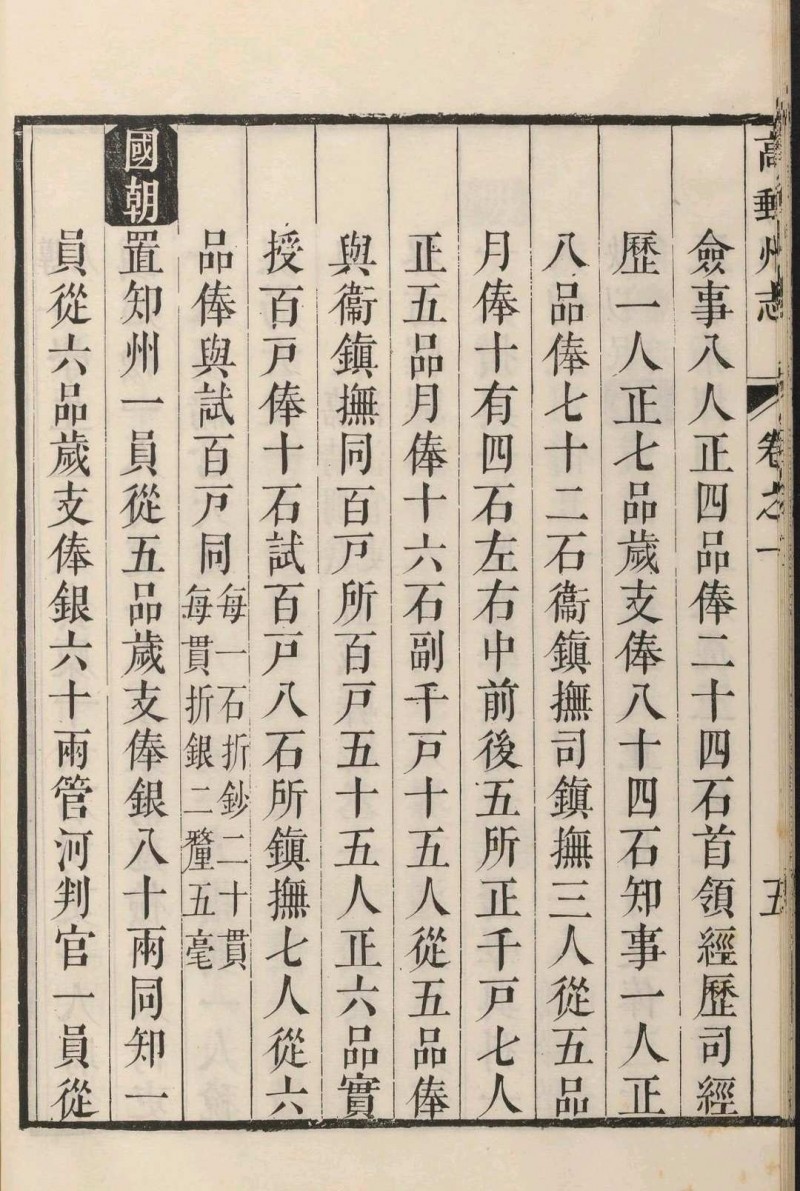 高郵州志 卷之一 五
僉事八人正四品俸二十四石首領經歷司經
歷一人正七品歲支俸八十四石知事一人正
八品俸七十二石衞鎭撫司鎭撫三人從五品
月俸十有四石左右中前後五所正千戸七人
正五品月俸十六石副千戸十五人從五品俸
與衞鎭撫同百戸所百戸五十五人正六品實
授百戸俸十石試百戸八石所鎭撫七人從六
品俸與試百戸同每一石折鈔二十貫
每貫折銀二釐五毫
國朝置知州一員從五品歲支俸銀八十兩同知一
員從六品歲支俸銀六十兩管河判官一員從